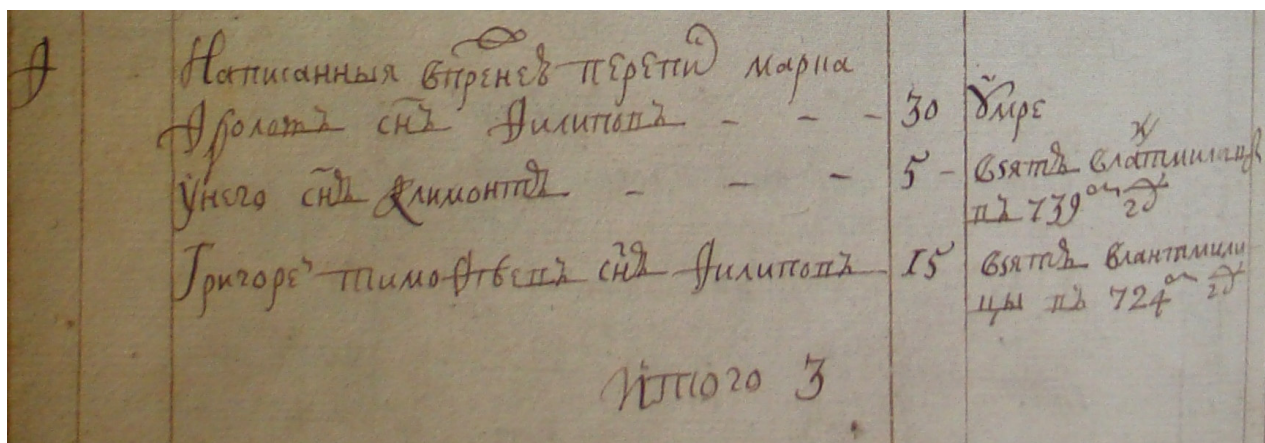 Ѳ
Написанныя впренеѣ перепи марка
Ѳролотъ снъ Ѳилиповъ - - - 30 умре
у него снъ Климонтъ - - - 5 - взятъ влатмилицы
въ 739 ом гд
Григорей тимоѲѣевъ снъ Ѳилиповъ 15 взятъ влантмили
цы въ 724 ом гд
Итого 3